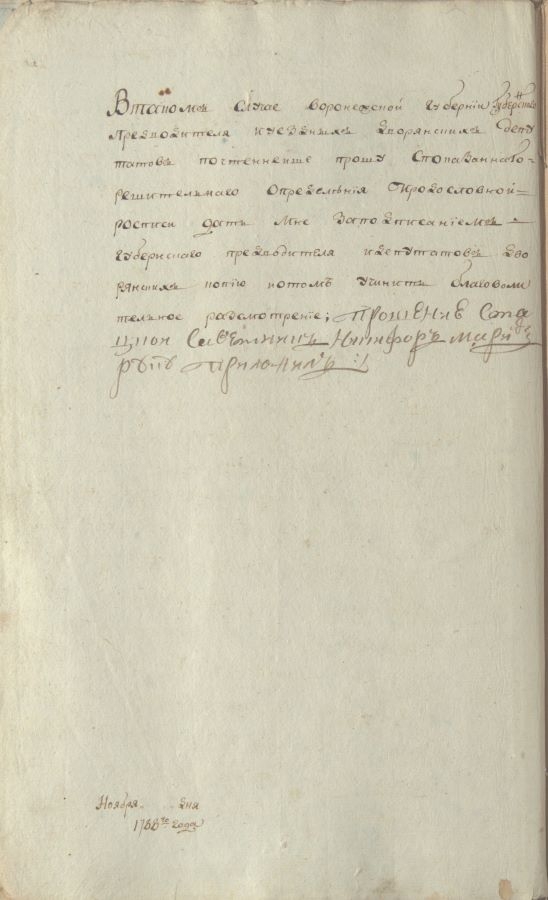 Втакомъ Случае воронежской губерніи губернско
предводителя иуезднымъ дворянскимъ депу
татовъ почтеннеише прошу Споказаннаго
решительнаго Определѣния Иродословной
росписи дать мне Заподписаниемъ
губернскаго предводителя идепутатовъ дво
рянскихъ копию потомъ учинить благоволи
тельное разсмотрение; прошение Стат
цкои Советникъ Никифоръ
приложилъ
Ноября дня
1788го года